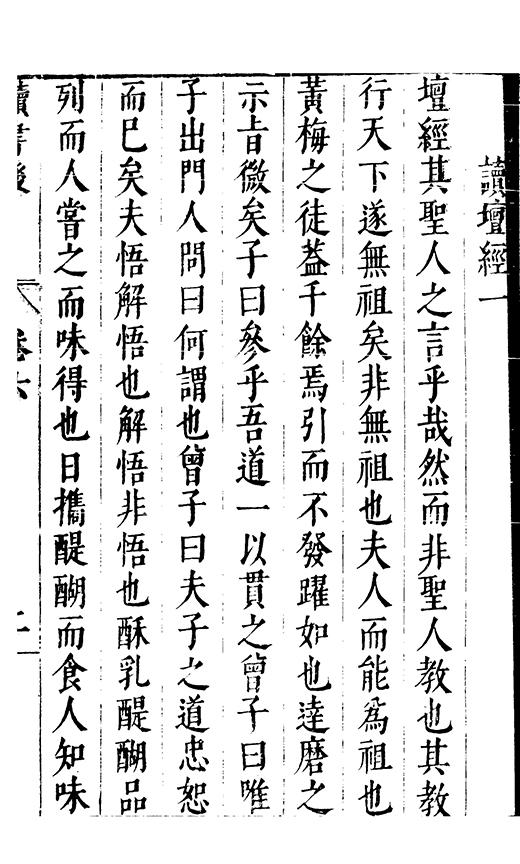 讀壇經一
壇經其聖人之言乎哉然而非聖人教也其教
行天下遂無祖矣非無祖也夫人而能為祖也
黃梅之徒葢千餘焉引而不發躍如也達磨之
示旨微矣子曰參乎吾道一以貫之曾子曰唯
子出門人問曰何謂也曾子曰夫子之道忠恕
而已矣夫悟解悟也解悟非悟也酥乳醍醐品
列而人嘗之而味得也日攜醍醐而食人知味
讀書後 卷六